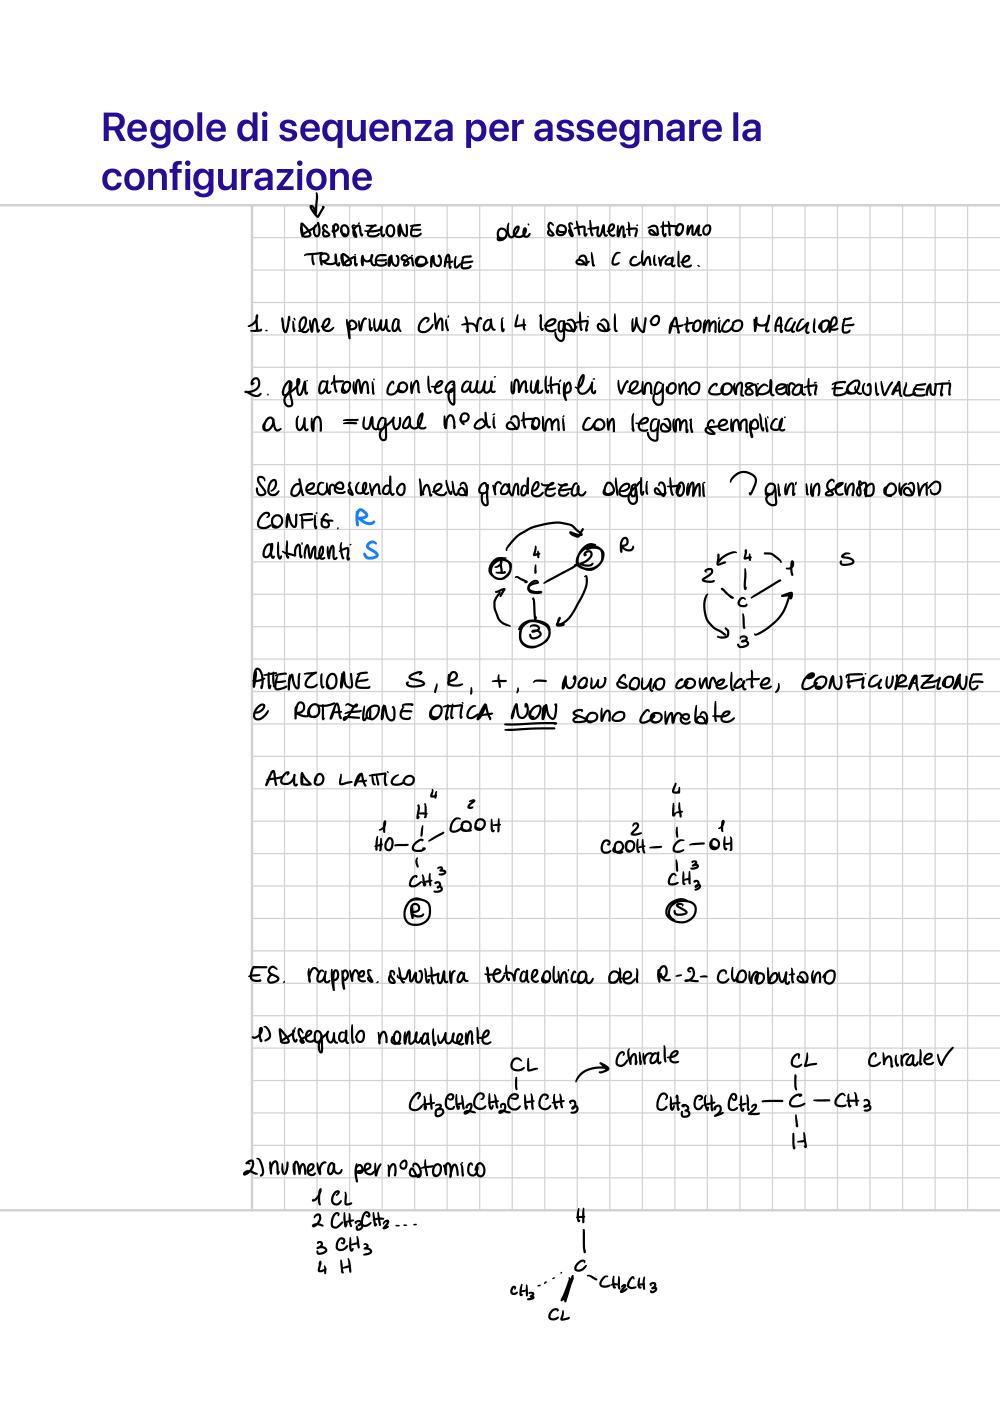 Regole di sequenza per assegnare la
configurazione
DISPOSIZIONE dei sostituenti attorno
TRIDIMENSIONALE al C chirale.
1. viene prima chi tra i 4 legati al N° Atomico MAGGIORE
2. gli atomi con legami multipli vengono considerati EQUIVALENTI
a un =ugual n° di atomi con legami semplici
Se decrescendo nella grandezza degli atomi giri in senso orario
CONFIG. R
altrimenti S
4
1 2 R
C
3
4
2 1 S
C
3
ATTENZIONE S, R, +, - NON sono correlate, CONFIGURAZIONE
e ROTAZIONE OTTICA NON sono correlate
ACIDO LATTICO
4
H 2
1 COOH
HO-C
CH3 3
R
4
H
2 1
COOH-C-OH
CH3 3
S
ES. rappres. struttura tetraedrica del R-2-clorobutano
1) Disegnalo normalmente
CL chirale
CH3CH2CH2CHCH3
CL chirale✓
CH3CH2CH2-C-CH3
H
2) numera per n° atomico
1 CL
2 CH3CH2...
3 CH3
4 H
H
C
CH3 CH2CH3
CL